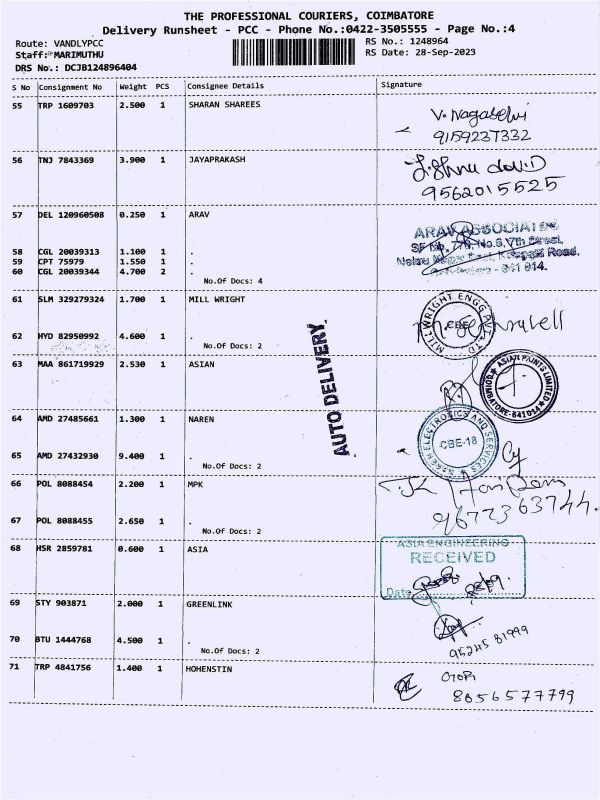 THE PROFESSIONAL COURIERS, COIMBATORE
Delivery Runsheet - PCC - Phone No.:0422-3505555 - Page No.:4
Route: VANDLYPCC
RS No.: 1248964
Staff: MARIMUTHU
RS Date: 28-Sep-2023
DRS No.: DCJB124896404
S No Consignment No Weight PCS Consignee Details Signature
55 TRP 1609703 2.500 1 SHARAN SHAREES
9159237332
56 TNJ 7843369 3.900 1 JAYAPRAKASH
9562015525
57 DEL 120960508 0.250 1 ARAV
ARAV ASSOCIATES
58 CGL 20039313 1.100 1 .
59 CPT 75979 1.550 1 .
60 CGL 20039344 4.700 2 .
No.Of Docs: 4
61 SLM 329279324 1.700 1 MILL WRIGHT
MILL WRIGHT ENGG
CBE
62 HYD 82950992 4.600 1 .
No.Of Docs: 2
AUTO DELIVERY.
63 MAA 861719929 2.530 1 ASIAN
ASIAN PAINTS LIMITED
COIMBATORE-641014
64 AMD 27485661 1.300 1 NAREN
ELECTRONICS AND SERVICES
CBE-18
65 AMD 27432930 9.400 1 .
No.Of Docs: 2
66 POL 8088454 2.200 1 MPK
9677363744.
67 POL 8088455 2.650 1 .
No.Of Docs: 2
68 HSR 2859781 0.600 1 ASIA
ASIA ENGINEERING
RECEIVED
Date
69 STY 903871 2.000 1 GREENLINK
9524581999
70 BTU 1444768 4.500 1 .
No.Of Docs: 2
71 TRP 4841756 1.400 1 HOHENSTIN
8056577799